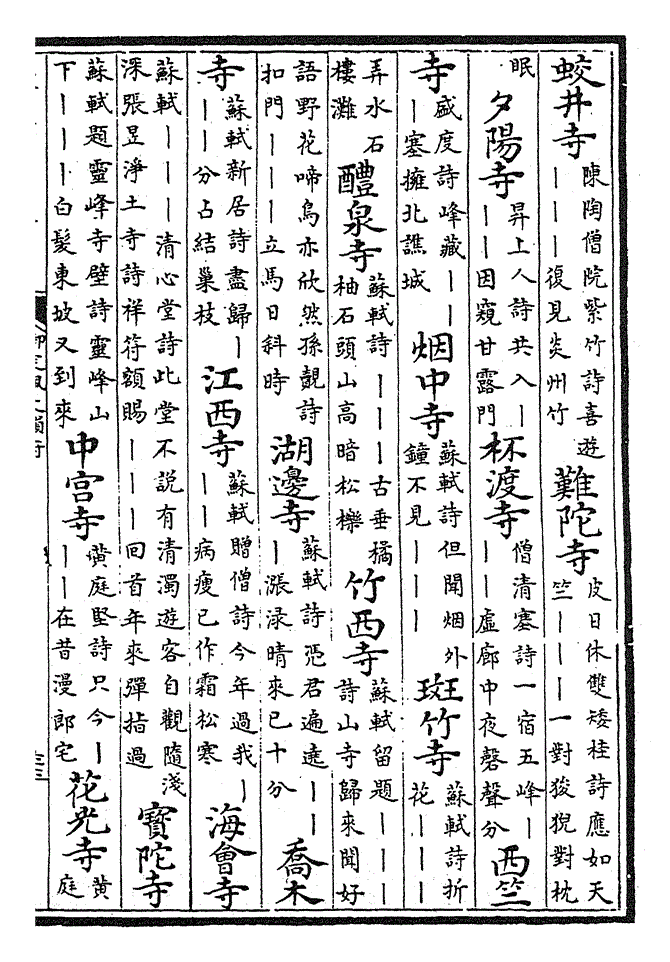 蛟井寺
陳陶僧院紫竹詩喜遊
｜｜｜復見炎州竹
難陀寺
皮日休雙矮桂詩應如天
竺｜｜｜一對狻猊對枕
眠
夕陽寺
昇上人詩共入｜
｜｜因窺甘露門
杯渡寺
僧清塞詩一宿五峰｜
｜｜虛廊中夜磬聲分
西竺
寺
盛度詩峰藏｜｜
｜塞擁北譙城
烟中寺
蘇軾詩但聞烟外
鐘不見｜｜｜
斑竹寺
蘇軾詩折
花｜｜｜
弄水石
樓灘
醴泉寺
蘇軾詩｜｜｜古垂橘
柚石頭山高暗松櫟
竹西寺
蘇軾留題｜｜｜
詩山寺歸來聞好
語野花啼鳥亦欣然孫覿詩
扣門｜｜｜立馬日斜時
湖邊寺
蘇軾詩恐君遍遶｜｜
｜漲淥晴來已十分
喬木
寺
蘇軾新居詩盡歸｜
｜｜分占結巢枝
江西寺
蘇軾贈僧詩今年過我｜
｜｜病瘦已作霜松寒
海會寺
蘇軾｜｜｜清心堂詩此堂不說有清濁遊客自觀隨淺
深張昱淨土寺詩祥符額賜｜｜｜回首年來彈指過
寶陀寺
蘇軾題靈峰寺壁詩靈峰山
下｜｜｜白髮東坡又到來
中宮寺
黃庭堅詩只今｜
｜｜在昔漫郎宅
花光寺
黃
庭